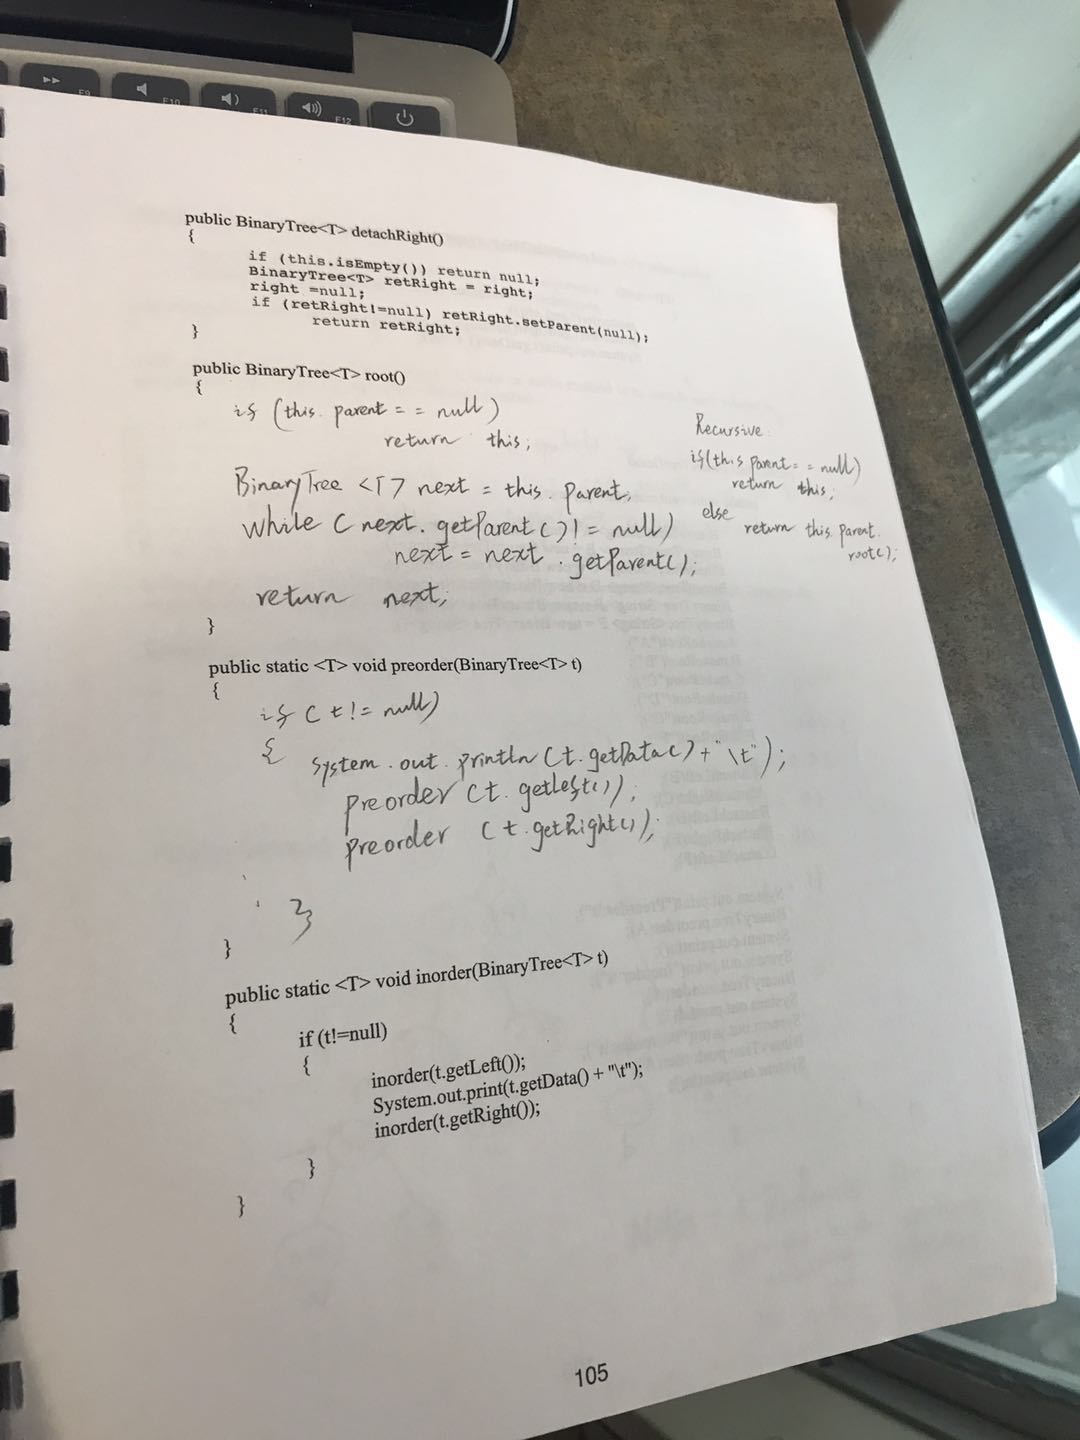 F9
F10
F11
F12
public BinaryTree<T> detachRight()
{
if (this.isEmpty()) return null;
BinaryTree<T> retRight = right;
right =null;
if (retRight!=null) retRight.setParent(null);
return retRight;
}
public BinaryTree<T> root()
{
if (this. parent = = null)
return this;
BinaryTree <T> next = this. parent;
while ( next. getParent()! = null)
next = next . getParent();
return next;
}
Recursive:
if(this parent = = null)
return this;
else
return this. parent.
root();
public static <T> void preorder(BinaryTree<T> t)
{
if ( t != null)
{
System . out . println (t. getData() + "\t" );
preorder (t. getLeft());
preorder (t. getRight());
}
}
public static <T> void inorder(BinaryTree<T> t)
{
if (t!=null)
{
inorder(t.getLeft());
System.out.print(t.getData() + "\t");
inorder(t.getRight());
}
}
105